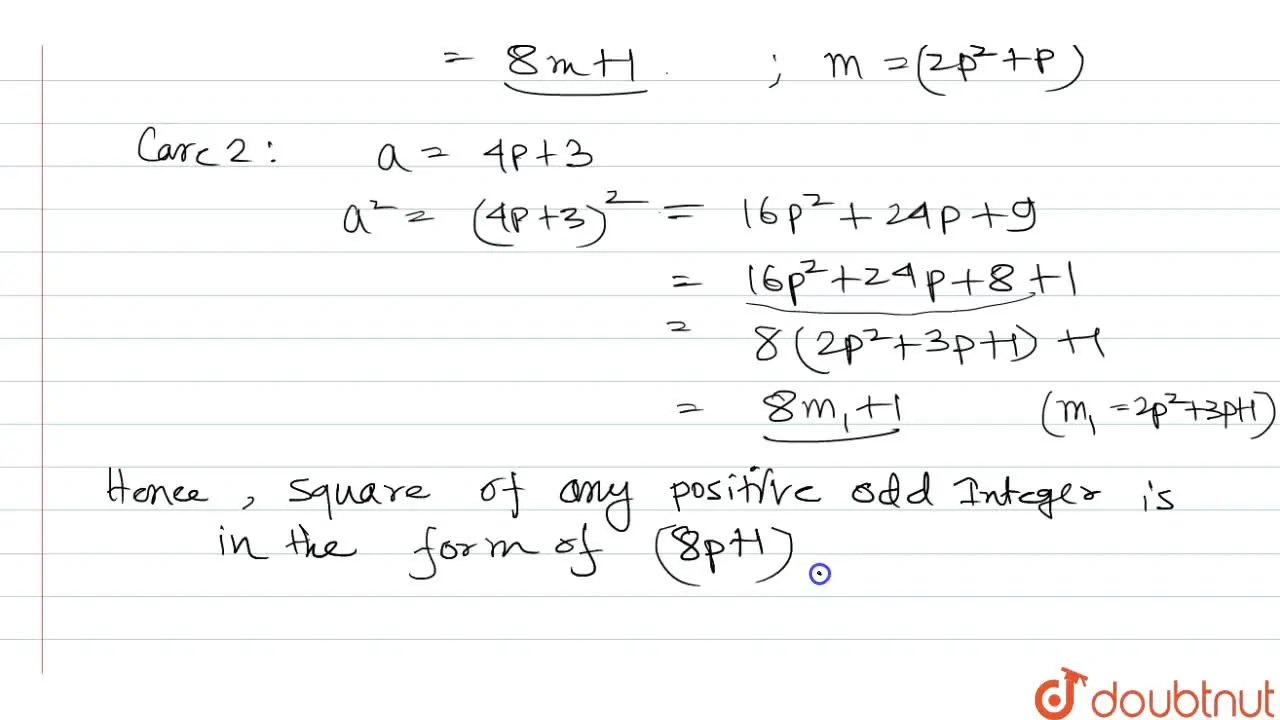 = 8m+1 ; m = (2p²+p)
Case 2 : a = 4p+3
a² = (4p+3)² = 16p² + 24p + 9
= 16p² + 24p + 8 + 1
= 8(2p²+3p+1) + 1
= 8m₁+1 (m₁ = 2p²+3p+1)
Hence , square of any positive odd Integer is
in the form of (8p+1)
doubtnut